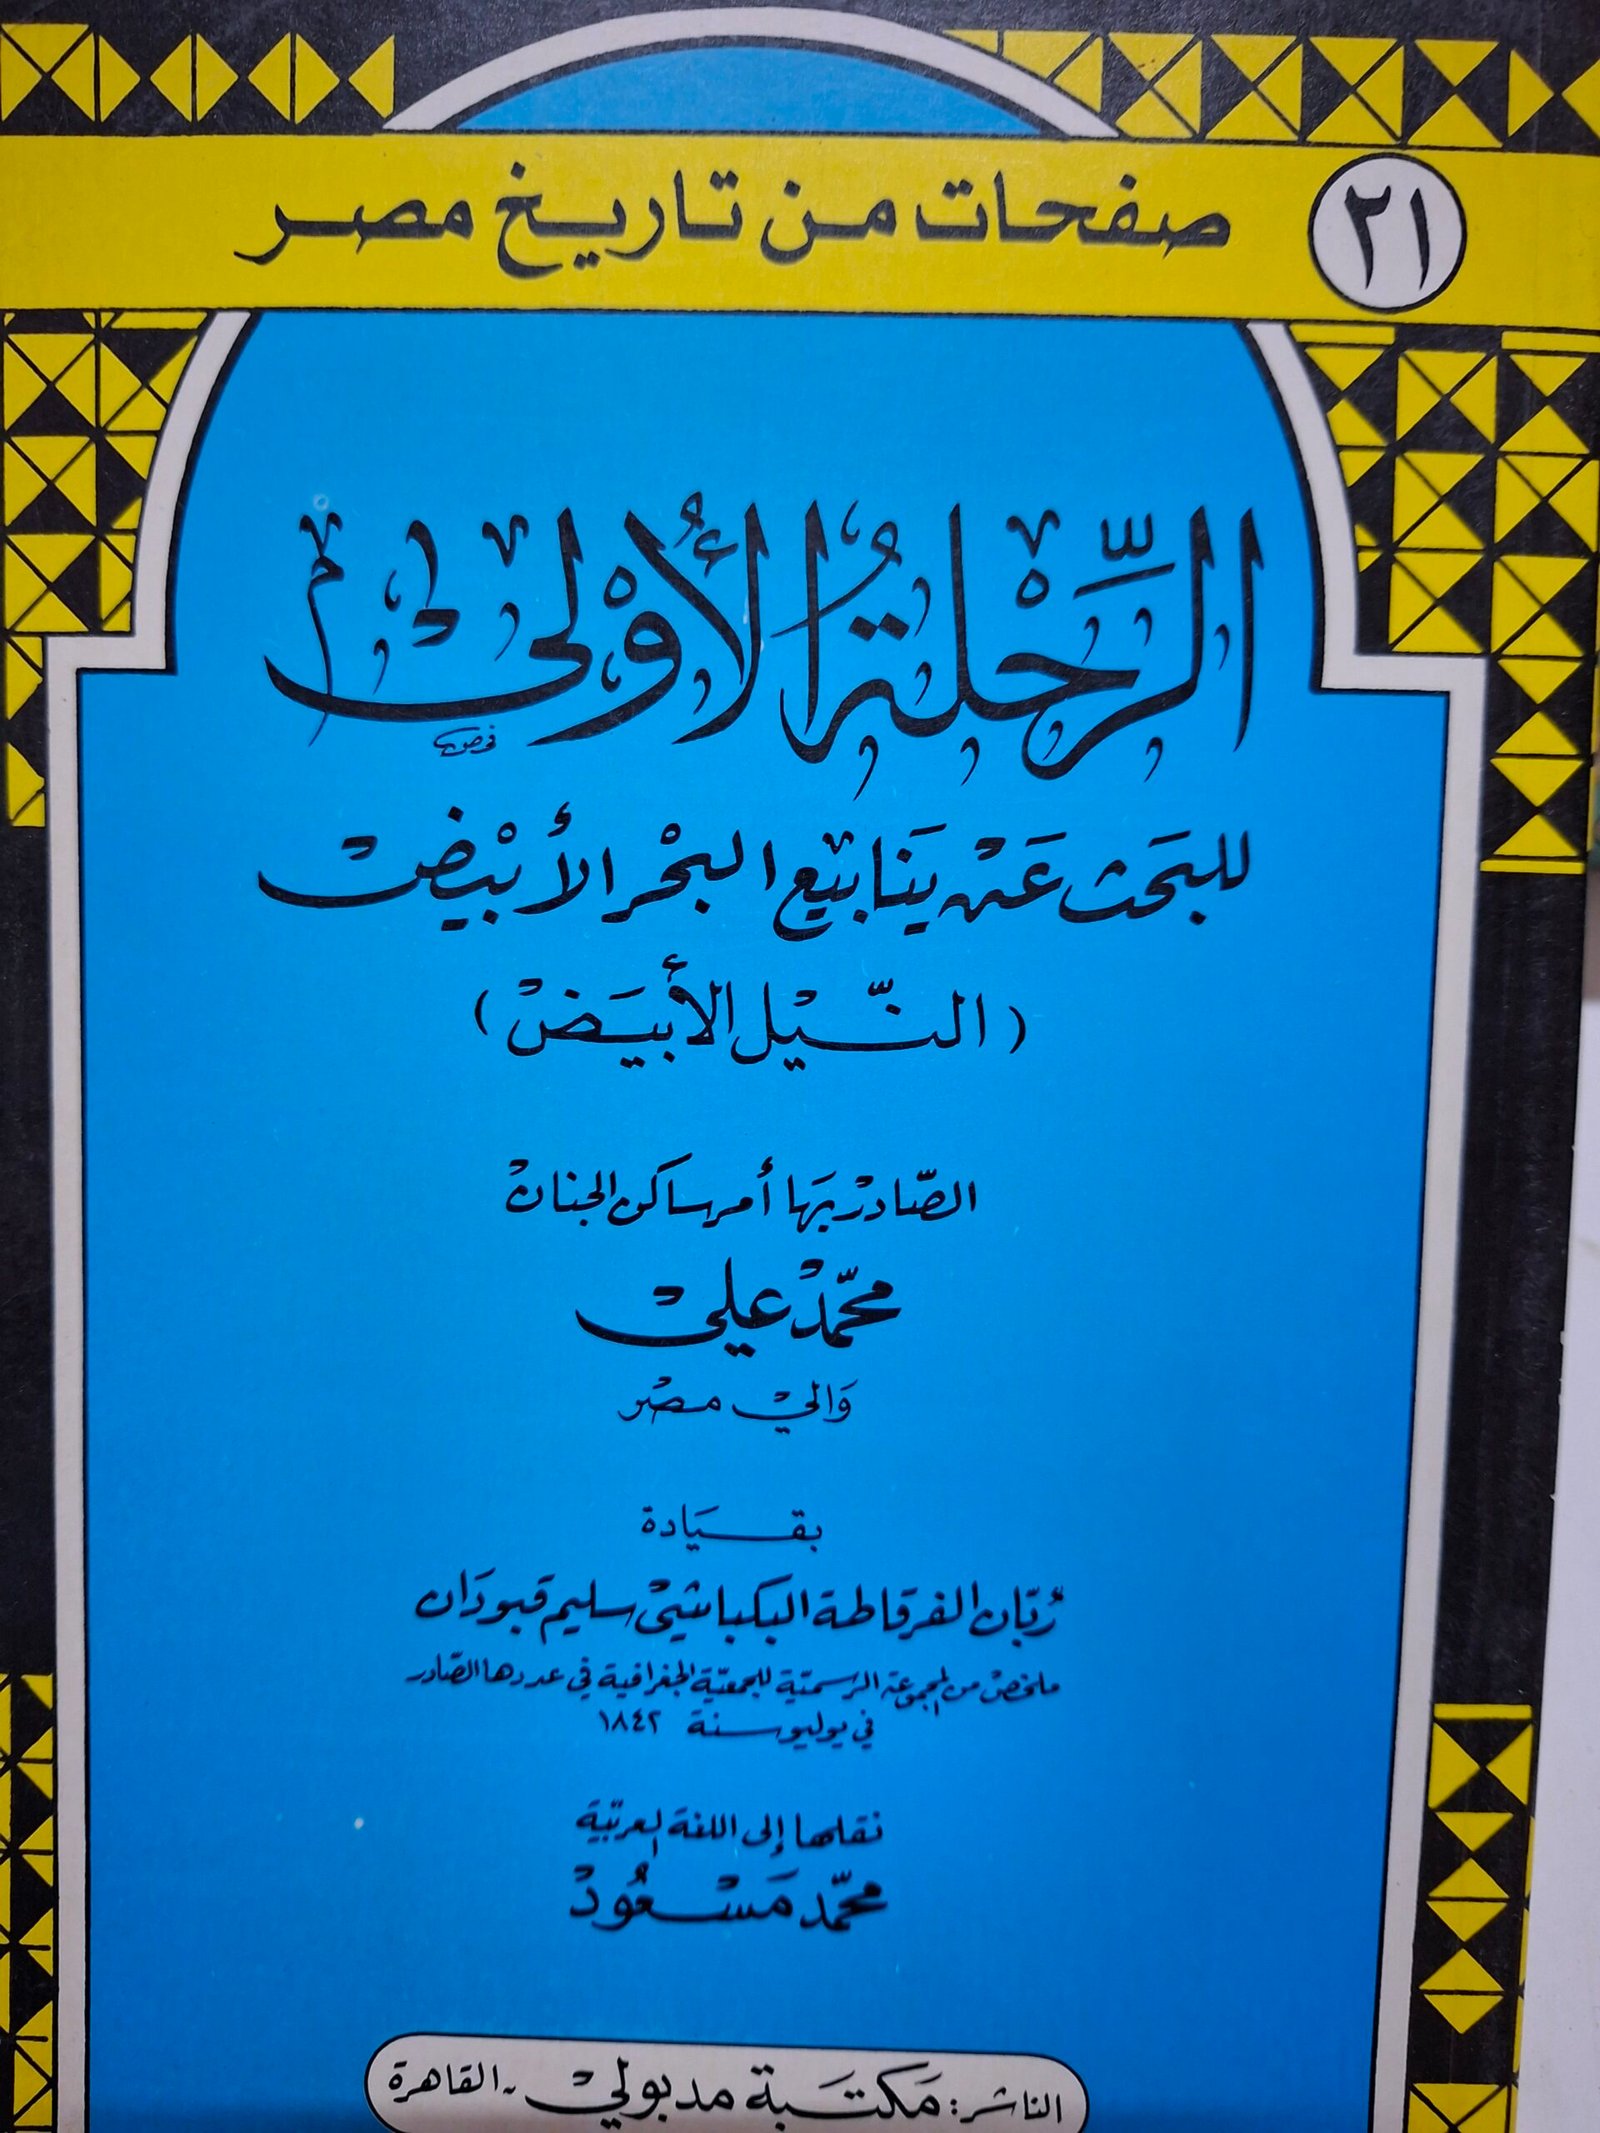 صفحات من تاريخ مصر ٢١
الرِّحْلةُ الأُوْلىْ
للبَحث عَنْ يَنَابيْع البحْر الأبْيضْ
(النّيْل الأبيَضْ)
الصّادرْ بهَا أمر ساكن الجنانْ
محمّدْ عليْ
وَاليْ مصْر
بقيَادة
رُبّان الفرقاطة البكباشيْ سليم قبودَان
ملخصْ من المجموعة الرسميّة للجمعيّة الجغرافية في عددها الصّادر
في يوليو سنة ١٨٤٢
نقلها إلى اللغة العربيّة
محمّد مَسْعُودْ
الناشر: مَكتبَة مدبوليْ - القاهرة